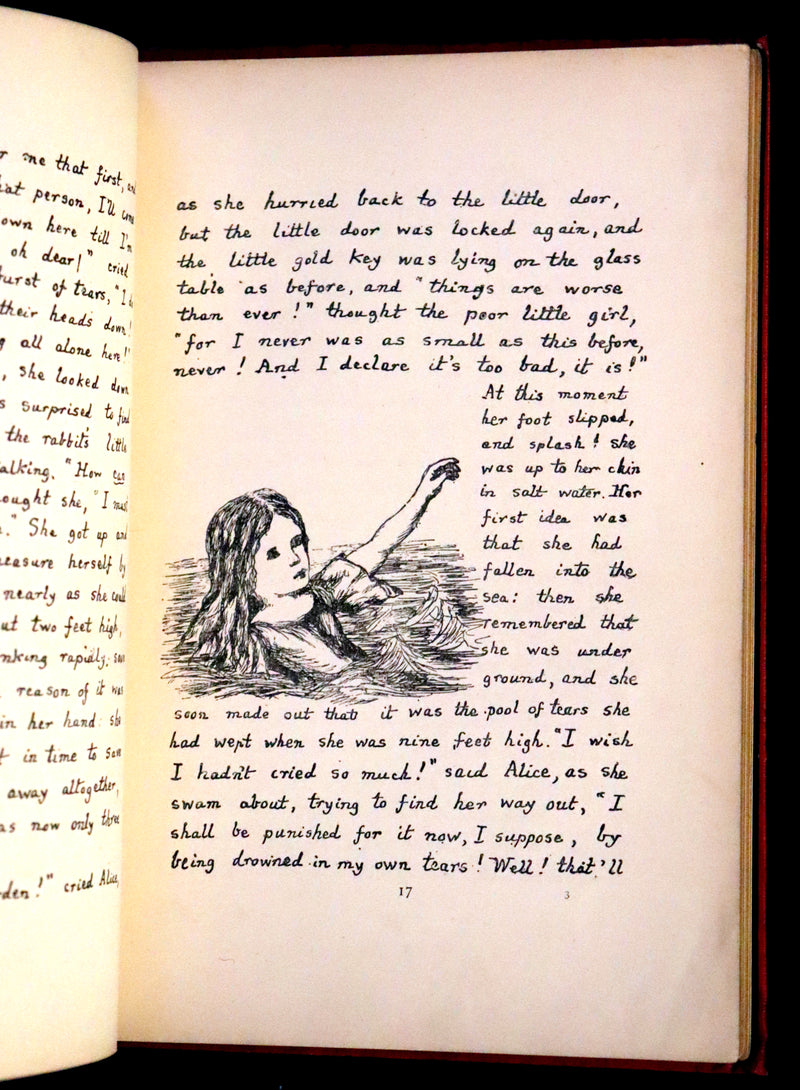 me that first, an
at person, I'll com
own here till I'm
oh dear!" cried
burst of tears, "I d
their heads down!
all alone here!"
, she looked down
s surprised to find
the rabbit's little
alking. "How can
ought she, "I must
." She got up and
easure herself by
nearly as she could
ut two feet high,
nking rapidly: soon
reason of it was
in her hand: she
t in time to save
away altogether,
as now only three
den!" cried Alice,
as she hurried back to the little door,
but the little door was locked again, and
the little gold key was lying on the glass
table as before, and "things are worse
than ever!" thought the poor little girl,
"for I never was as small as this before,
never! And I declare it's too bad, it is!"
At this moment
her foot slipped,
and splash! she
was up to her chin
in salt water. Her
first idea was
that she had
fallen into the
sea: then she
remembered that
she was under
ground, and she
soon made out that it was the pool of tears she
had wept when she was nine feet high. "I wish
I hadn't cried so much!" said Alice, as she
swam about, trying to find her way out, "I
shall be punished for it now, I suppose, by
being drowned in my own tears! Well! that'll
17
3